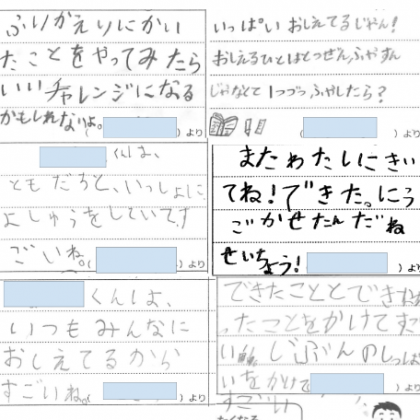 ふりかえりにかい
たことをやってみたら
いいチャレンジになる
かもしれないよ。
( )より
いっぱいおしえてるじゃん!
おしえるひとはとつぜんふやすん
じゃなくて1つづつふやしたら?
( )より
くんは、
ともだちと、いっしょに
よしゅうをしていてす
ごいね。
( )より
またわたしにきい
てね!できた。にう
ごかせたんだね
せいちょう!
( )より
くんは、
いつもみんなに
おしえてるから
すごいね。
( )より
できたこととできなか
ったことをかけてすご
い。じぶんのしっぱ
いをかけて
( )より
すごい